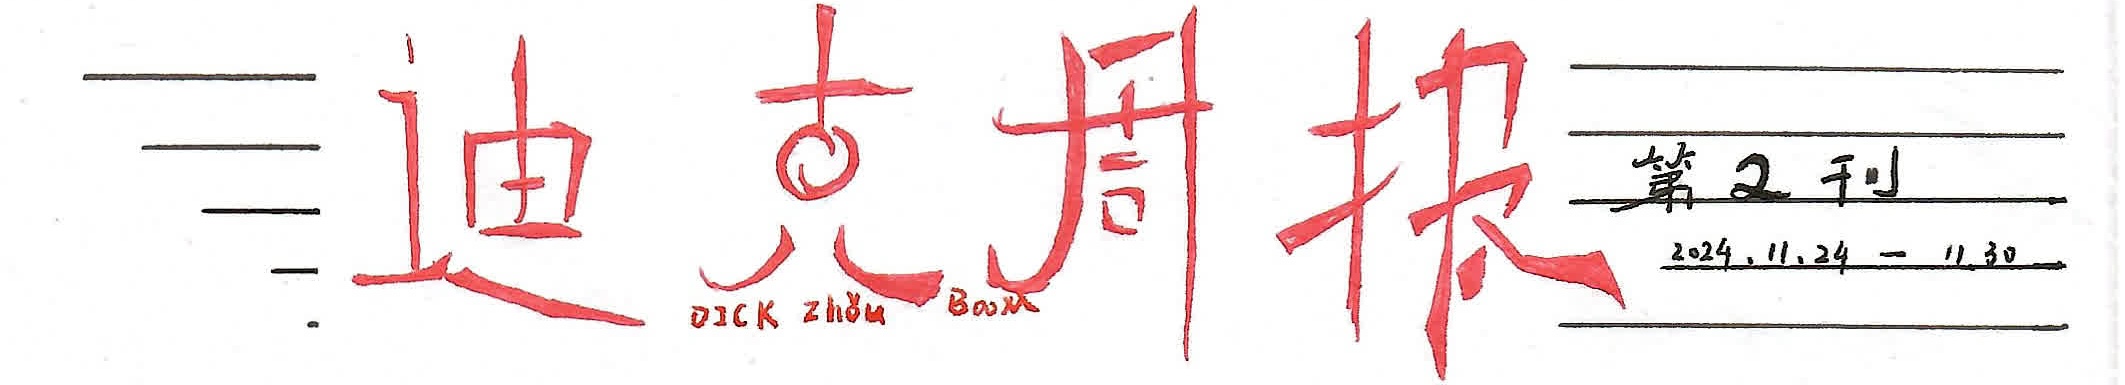 迪克周报
DICK Zhǒu Boom
第2刊
2024.11.24 — 11.30